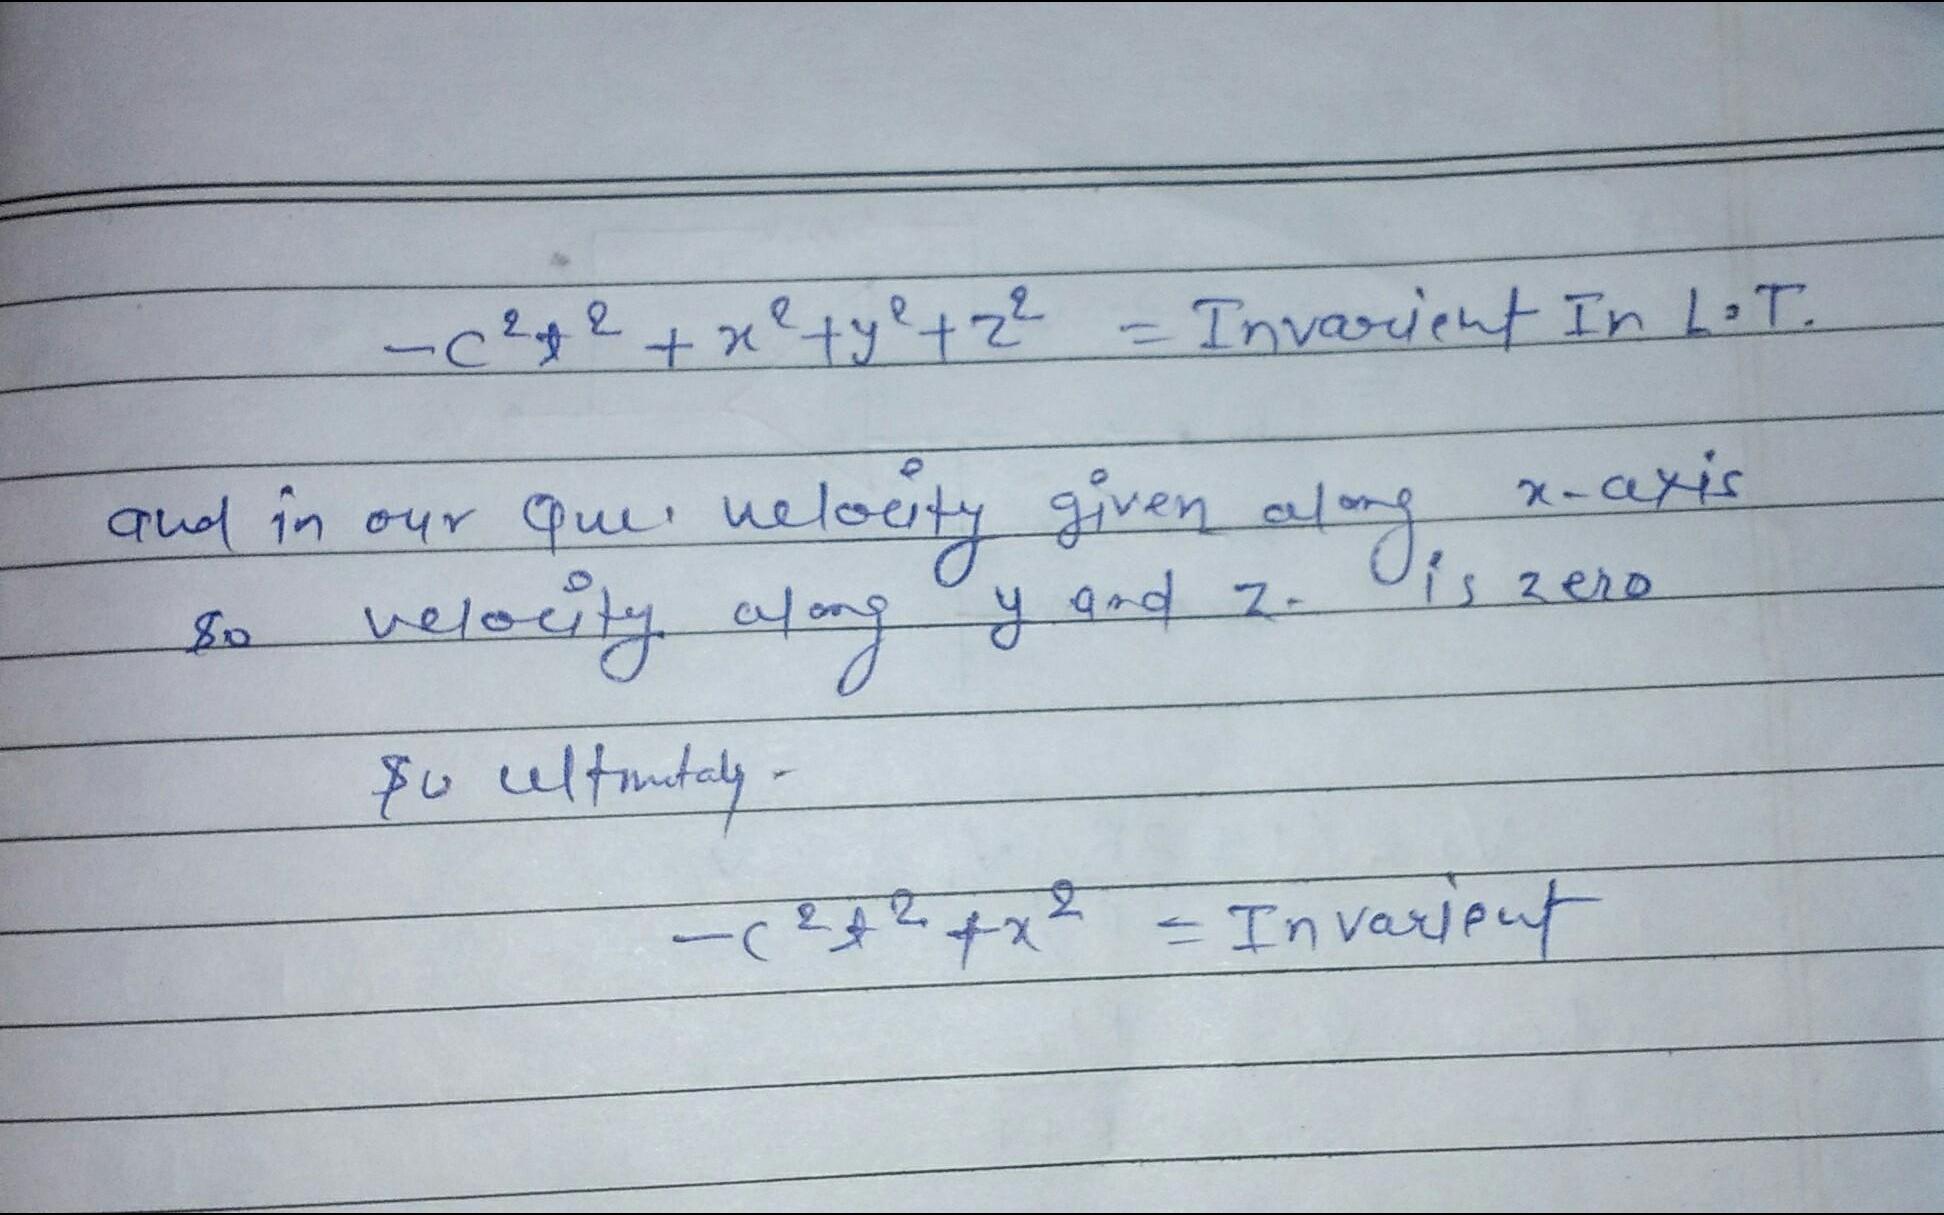 -c²t² + x² + y² + z² = Invarient In L.T.
and in our Que. velocity given along x-axis
so velocity along y and z. is zero
so ultmataly -
-c²t² + x² = Invarient